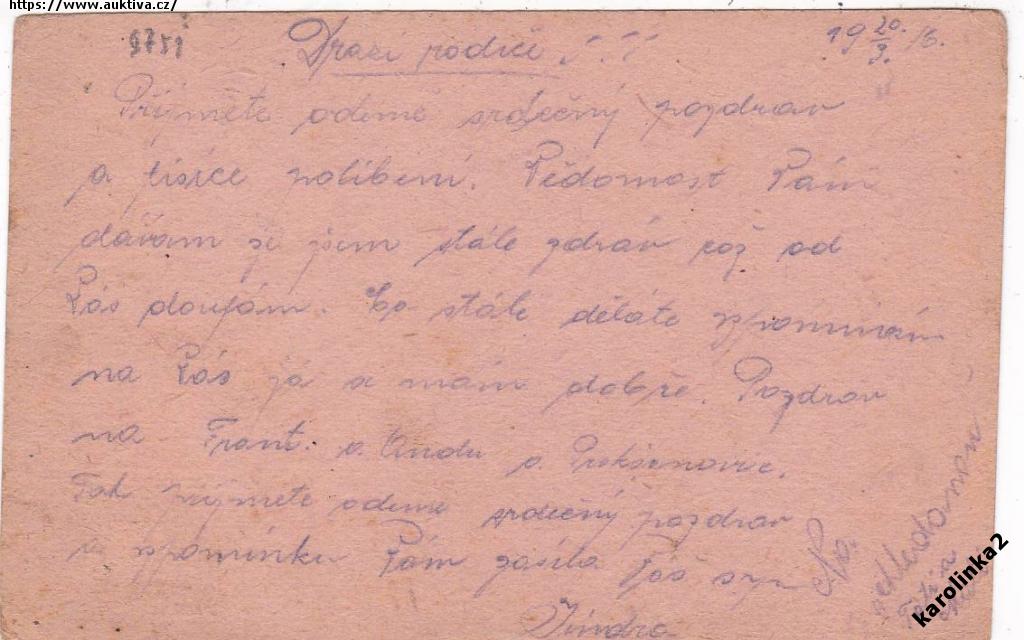 https://www.auktiva.cz/
9751
Drazí rodiče !!!
19 20./3. 16.
Přijměte odemě srdečný pozdrav
a tisíce políbení. Vědomost Vám
dávám že jsem stále zdráv což od
Vás doufám. Co stále děláte vzpomínám
na Vás já se mám dobře. Pozdrav
na Frant. a Andu a
Tak přijmete odeme srdečný pozdrav
a vzpomínku Vám zasílá Váš syn
Jindra
Na
shledanou
karolinka2